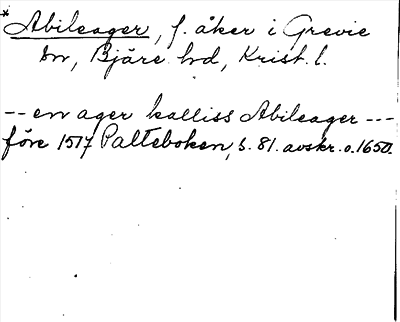 *Abileager, f. åker i Grevie
sn, Bjäre hd, Krist. l.
-- en ager kalliss Abileager ---
före 1517 Palteboken, s. 81. avskr. o. 1650.